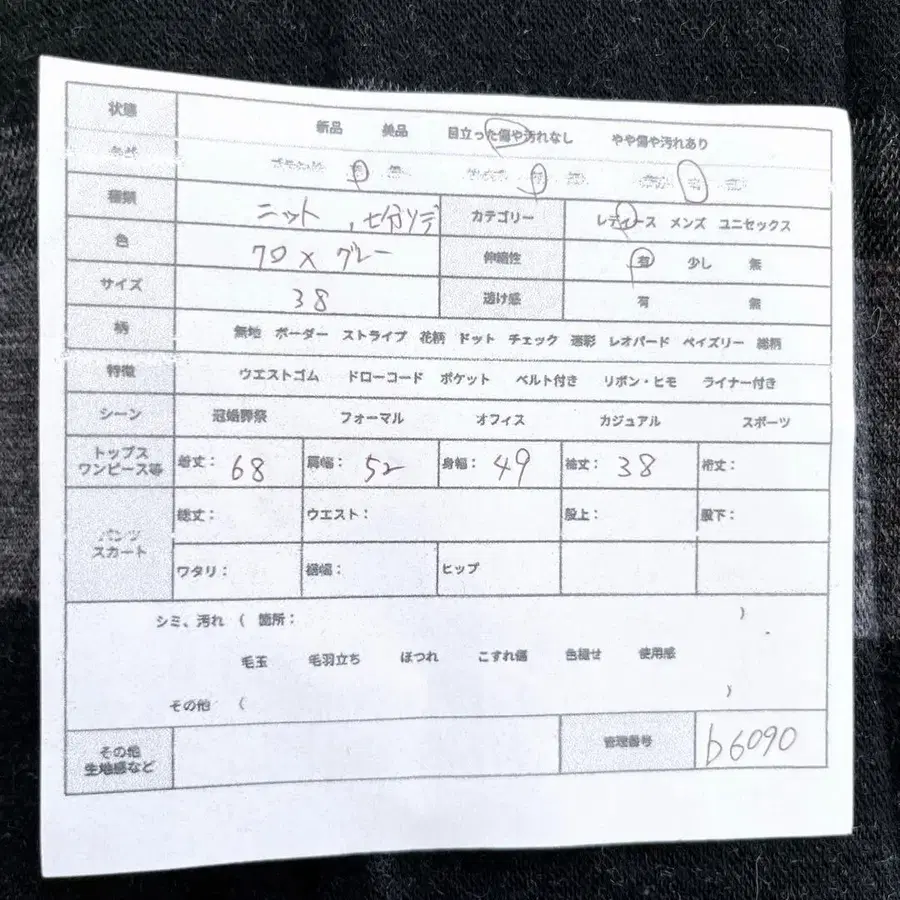 状態 新品 美品 目立った傷や汚れなし やや傷や汚れあり
種類 ニット、七分ソデ カテゴリー レディース メンズ ユニセックス
色 クロ×グレー 伸縮性 有 少し 無
サイズ 38 透け感 有 無
柄 無地 ボーダー ストライプ 花柄 ドット チェック 迷彩 レオパード ペイズリー 総柄
特徴 ウエストゴム ドローコード ポケット ベルト付き リボン・ヒモ ライナー付き
シーン 冠婚葬祭 フォーマル オフィス カジュアル スポーツ
トップス
ワンピース等 着丈: 68 肩幅: 52 身幅: 49 袖丈: 38 裄丈:
パンツ
スカート 総丈: ウエスト: 股上: 股下:
ワタリ: 裾幅: ヒップ
シミ、汚れ ( 箇所: )
毛玉 毛羽立ち ほつれ こすれ傷 色褪せ 使用感
その他 ( )
その他
生地感など 管理番号 b6090